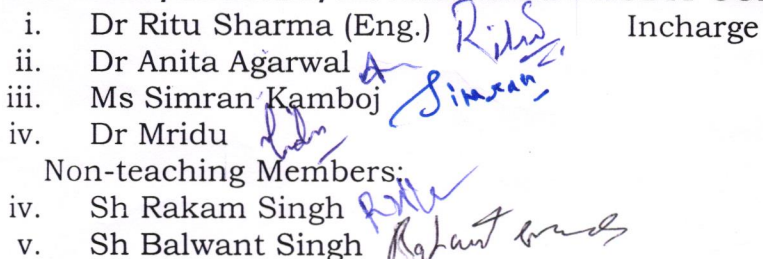 i. Dr Ritu Sharma (Eng.) Ritu Incharge
ii. Dr Anita Agarwal
iii. Ms Simran Kamboj Simran
iv. Dr Mridu
Non-teaching Members:
iv. Sh Rakam Singh
v. Sh Balwant Singh